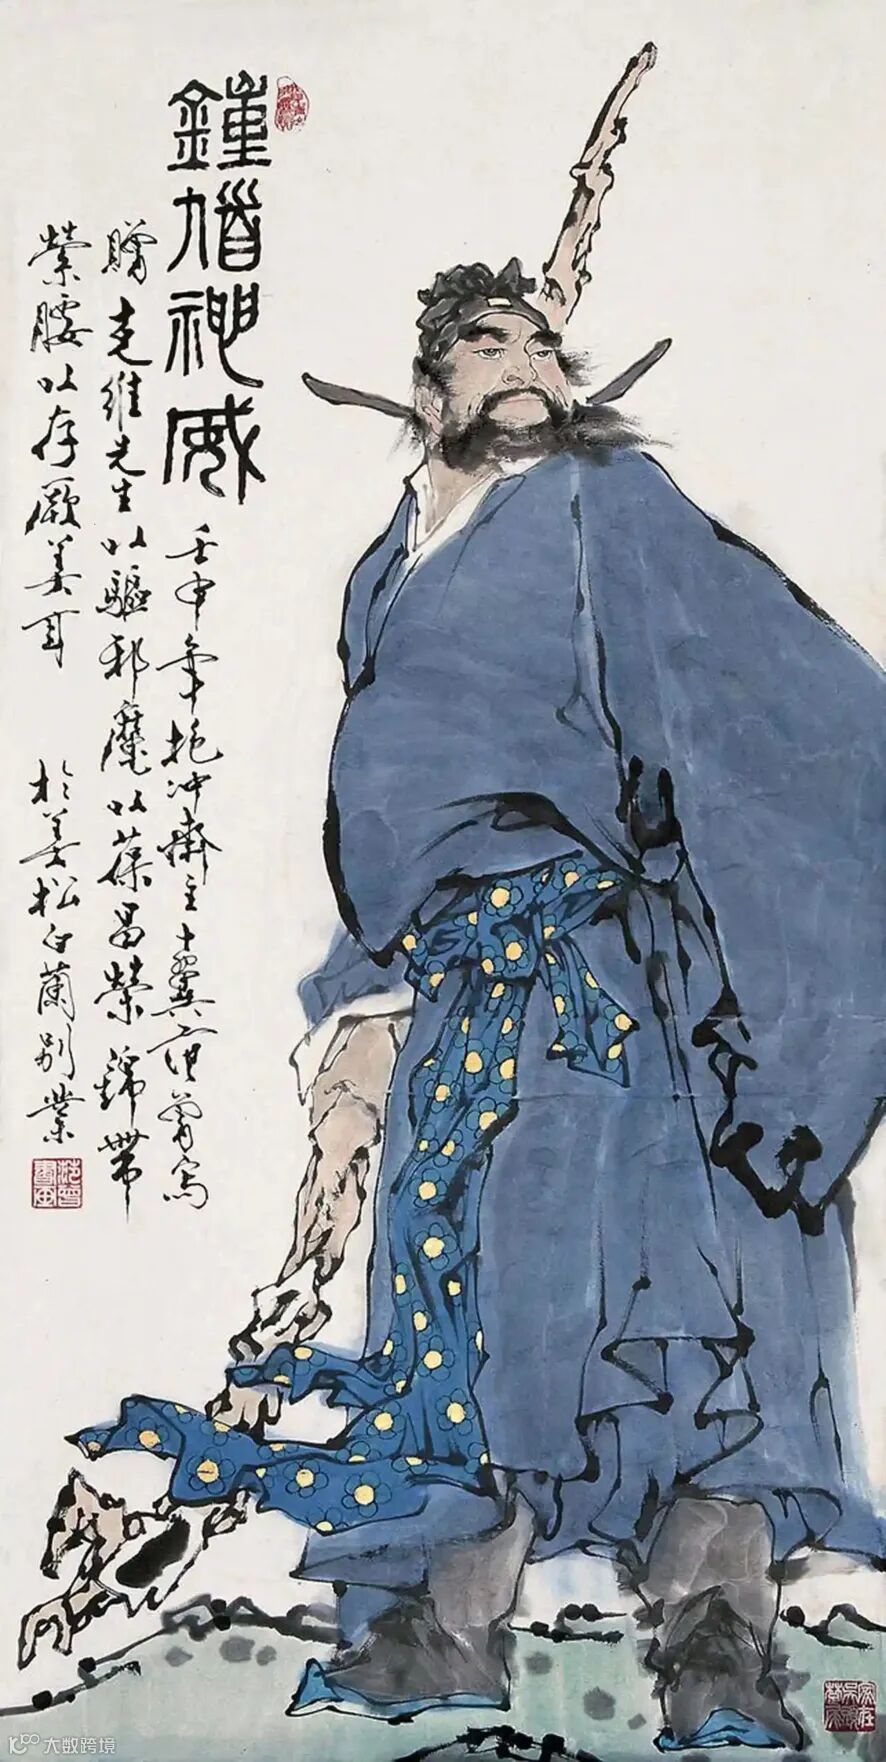 鍾馗神威
壬申年抱冲斋主十翼范曾写
赠克维先生以驱邪魔以葆昌荣锦带
萦腰以存厥美耳 於美松白兰别业
大数跨境